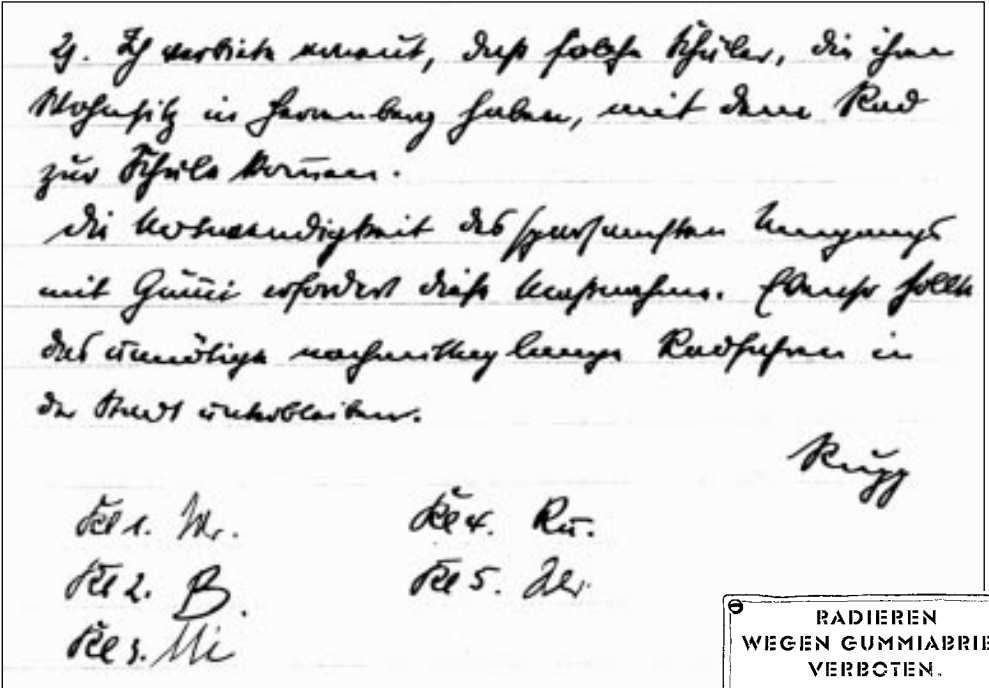 2). Ich verbiete erneut, daß solche Schüler, die ihren
Wohnsitz in Herrenberg haben, mit dem Rad
zur Schule kom̄en.
Die Notwendigkeit des sparsamsten Umgangs
mit Gum̄i erfordert diese Maßnahme. Ebenso sollte
das unnötige nachmittaglange Radfahren in
der Stadt unterbleiben.
Rupp
Kl 1. Wr.
Kl 2. B.
Kl 3. Mi
Kl 4. Ru.
Kl 5.
RADIEREN
WEGEN GUMMIABRIE
VERBOTEN.